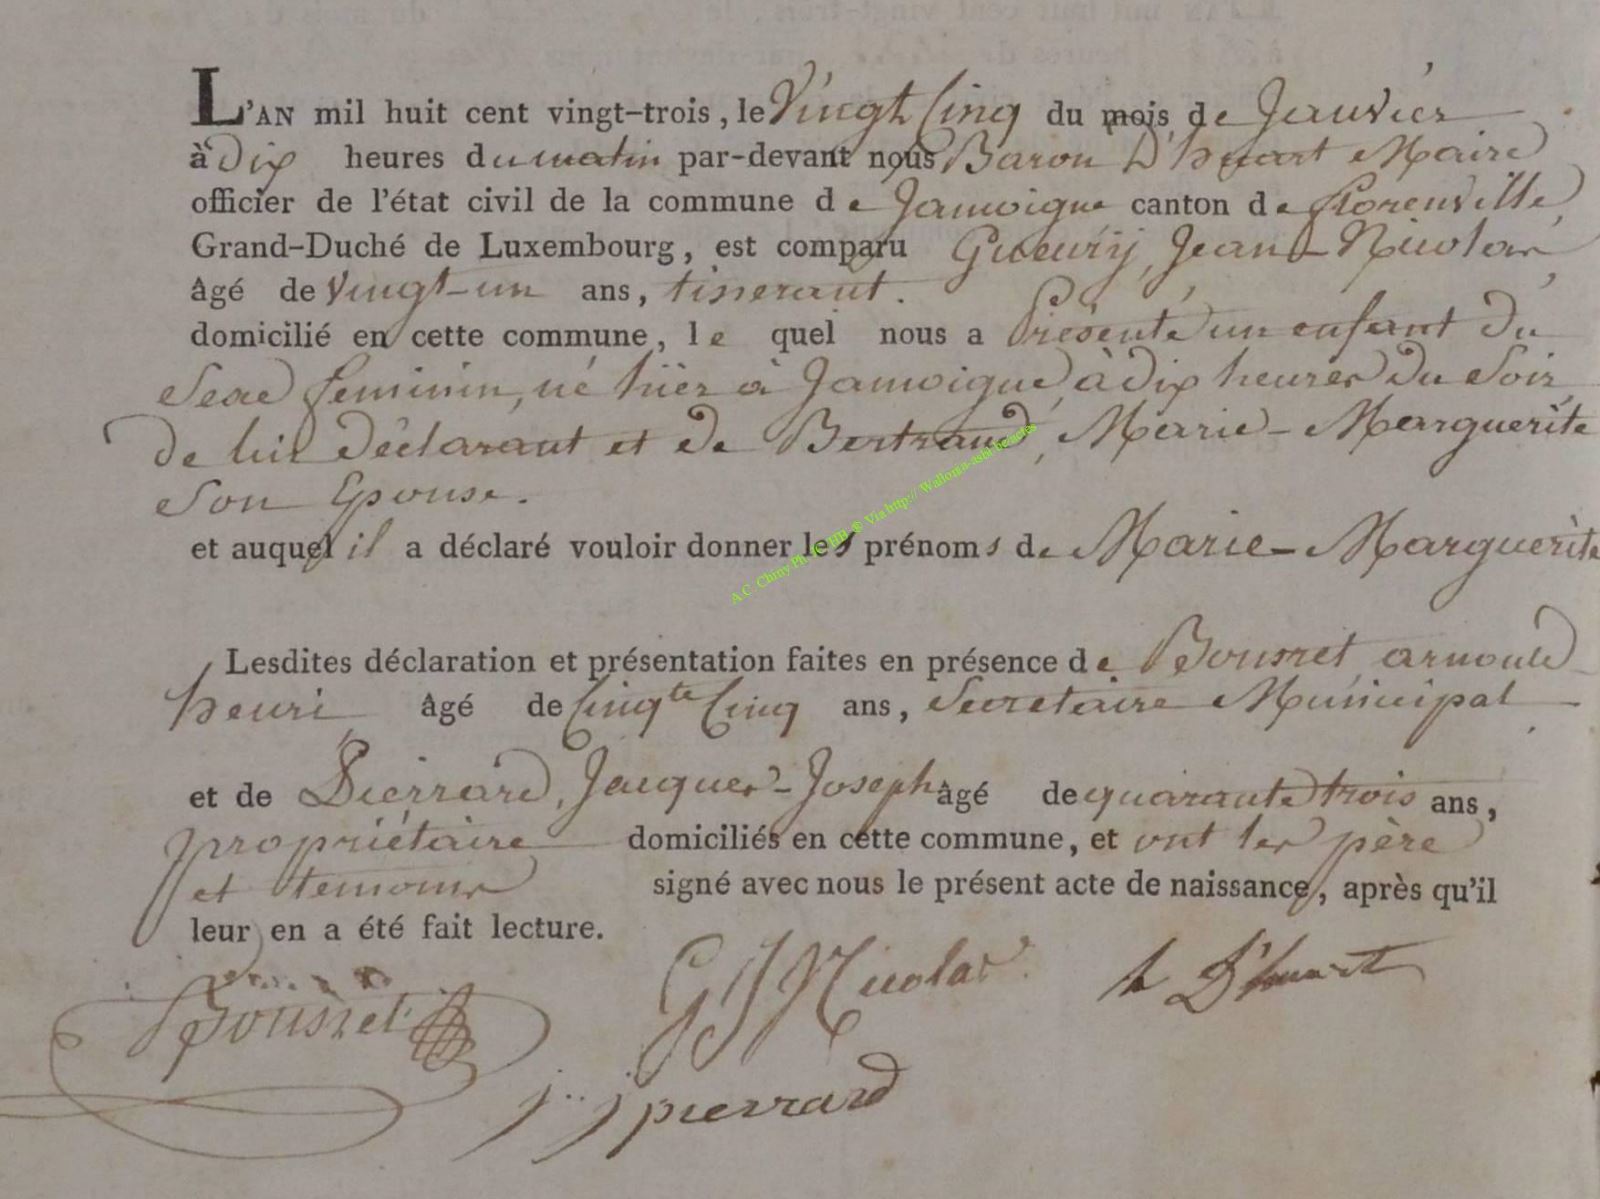 L'AN mil huit cent vingt-trois, le Vingt Cinq du mois de Janvier
à Dix heures du matin par-devant nous Baron D'huart Maire
officier de l'état civil de la commune de Jamoigne canton de florenville,
Grand-Duché de Luxembourg, est comparu Gueury, Jean-Nicolas,
âgé de Vingt-un ans, tisserant.
domicilié en cette commune, le quel nous a Présenté un enfant Du
Sexe feminin, né hier à Jamoigne, à dix heures Du Soir,
De lui Déclarant et de Bertrand, Marie-Marguerite
Son Epouse.
et auquel il a déclaré vouloir donner les prénoms de Marie-Marguerite
Lesdites déclaration et présentation faites en présence de Bousret, arnould
henri, âgé de Cinqte Cinq ans, Secretaire Municipal
et de Pierrard, Jacques-Joseph âgé de quarante trois ans,
propriétaire domiciliés en cette commune, et ont les père
et temoins signé avec nous le présent acte de naissance, après qu'il
leur en a été fait lecture.
Bousret GJNicolas h D'huart
j.. j pierrard
A.C. Chiny Ph. HB ® Via http:// Wallonia-asbl.be/actes